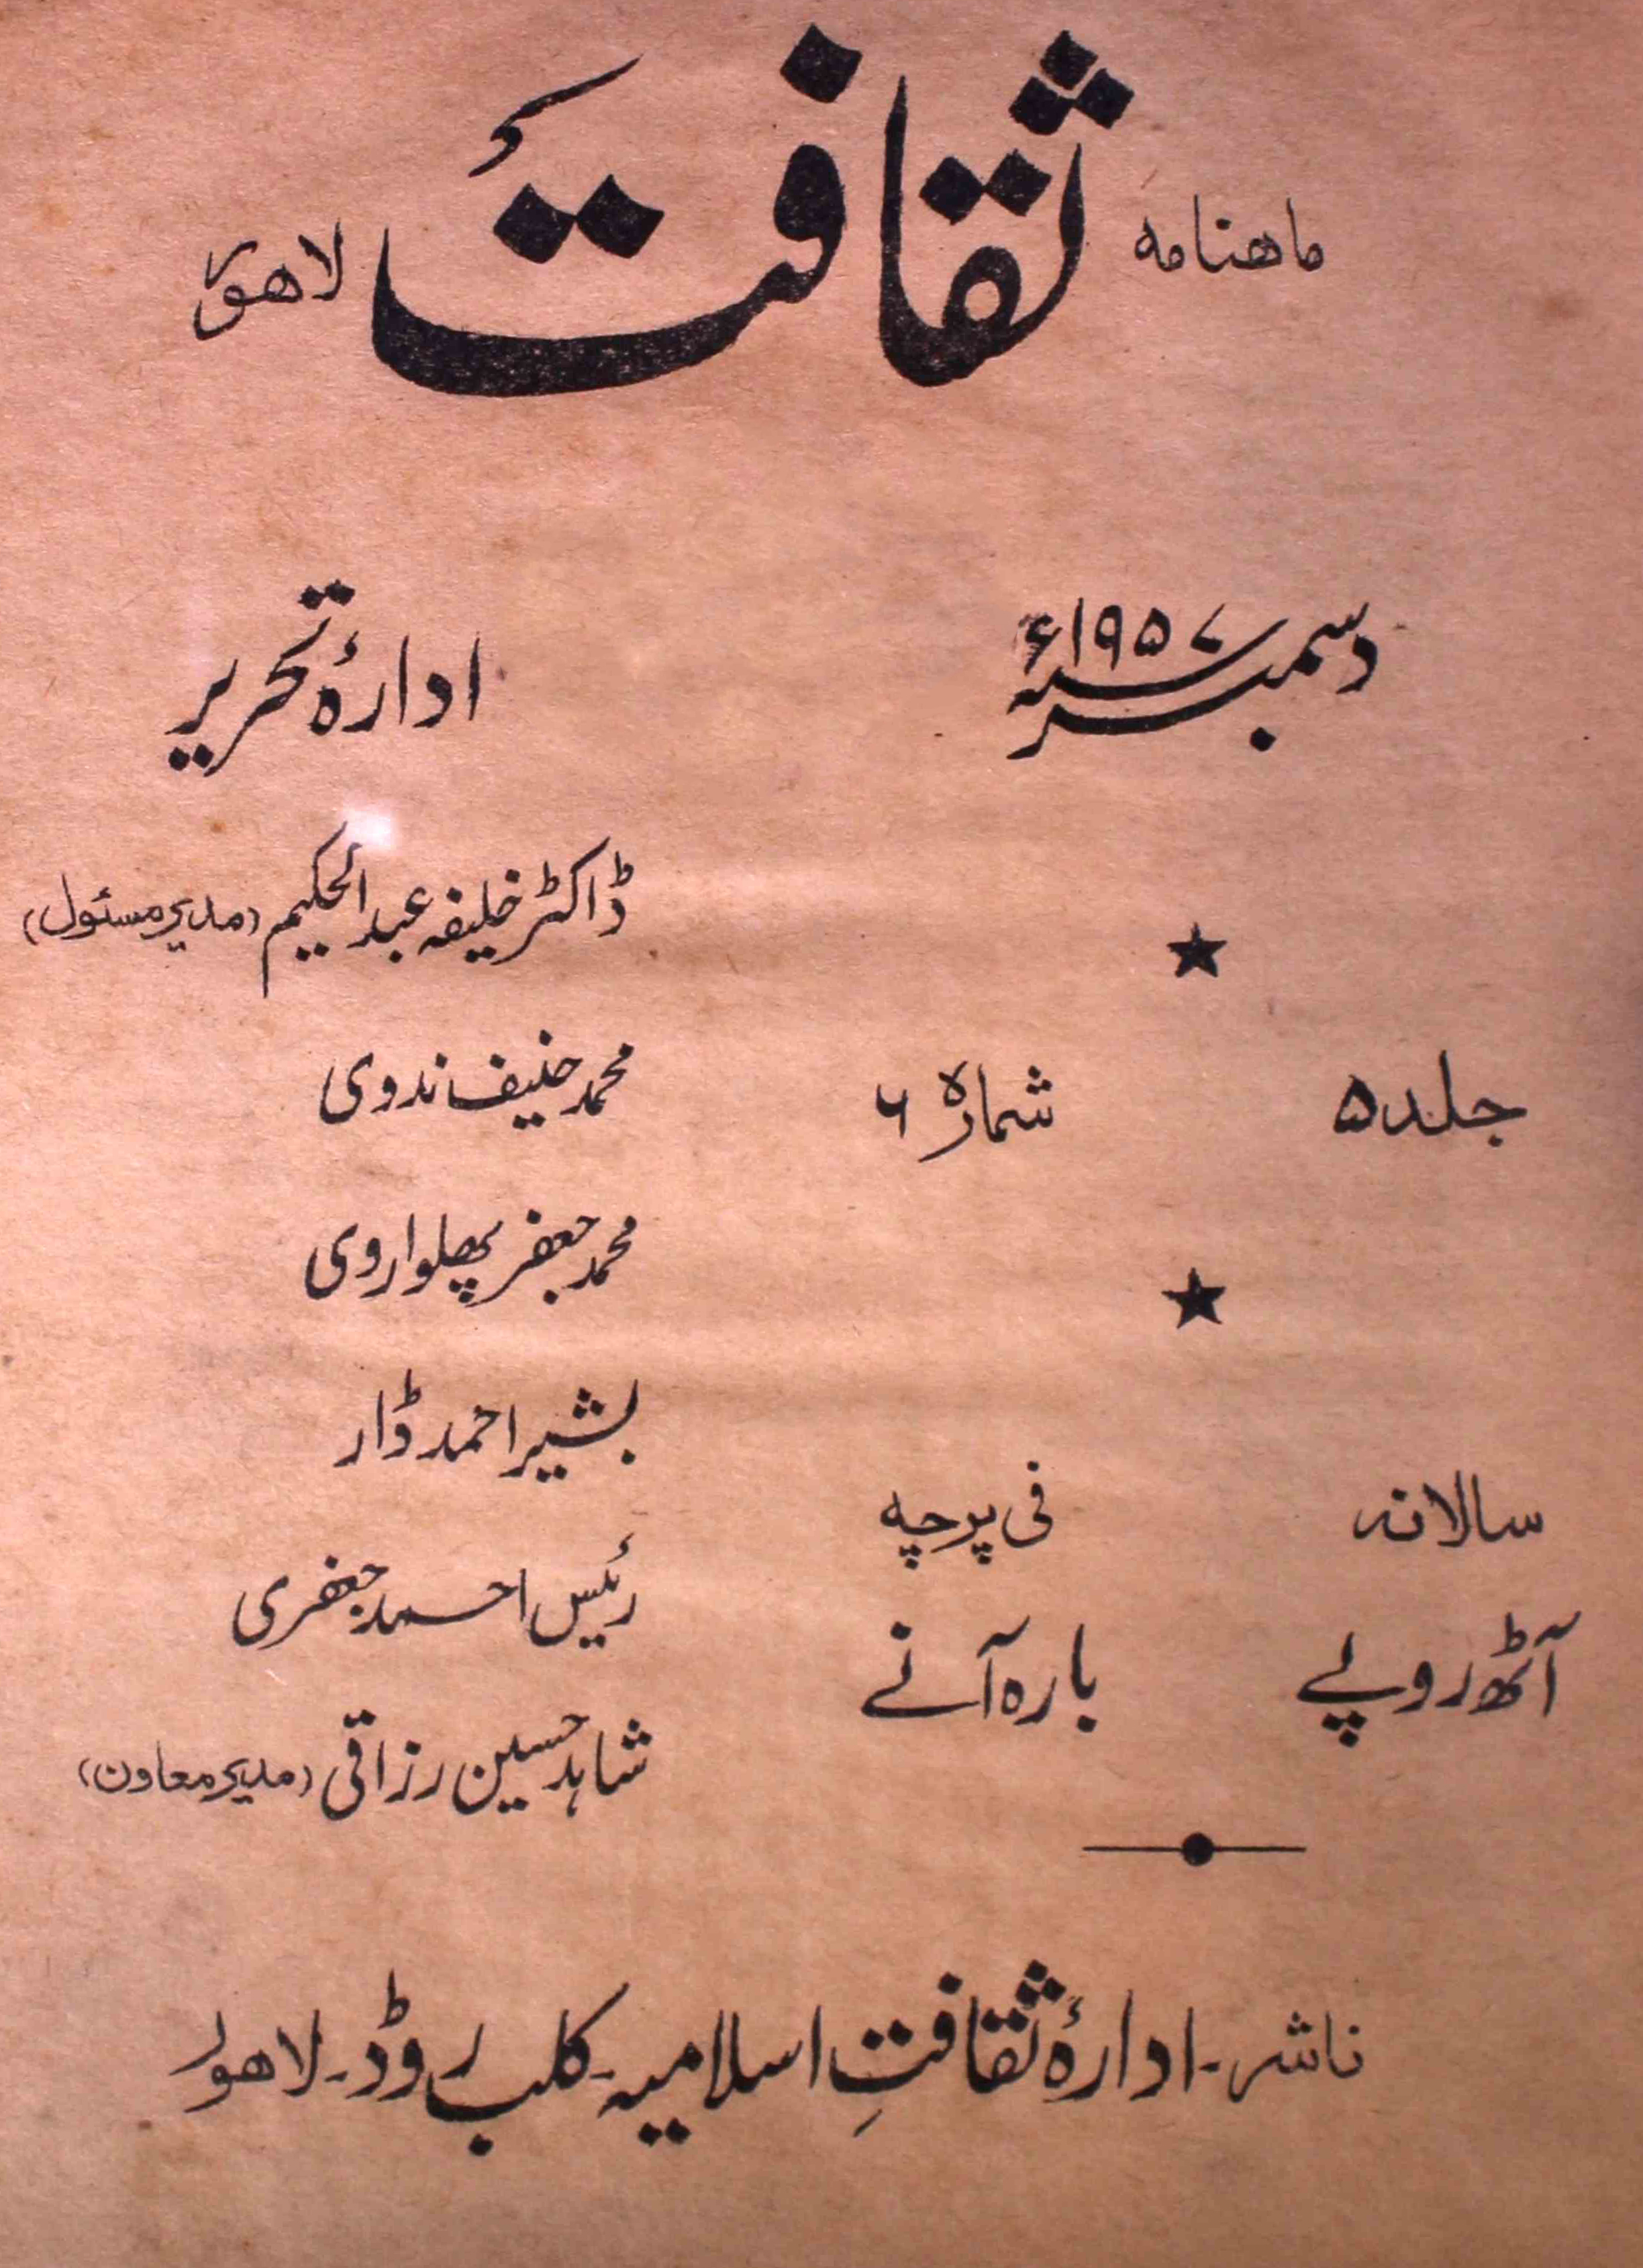 ماهنامه ثقافت لاهور
دسمبر ۱۹۵۷ء
جلد ۵ شماره ۶
سالانہ فی پرچہ
آٹھ روپے بارہ آنے
ادارۂ تحریر
ڈاکٹر خلیفہ عبدالحکیم (مدیر مسئول)
محمد حنیف ندوی
محمد جعفر پھلواروی
بشیر احمد ڈار
رئیس احمد جعفری
شاہد حسین رزاقی (مدیر معاون)
ناشر۔ ادارۂ ثقافتِ اسلامیہ۔ کلب روڈ۔ لاهور